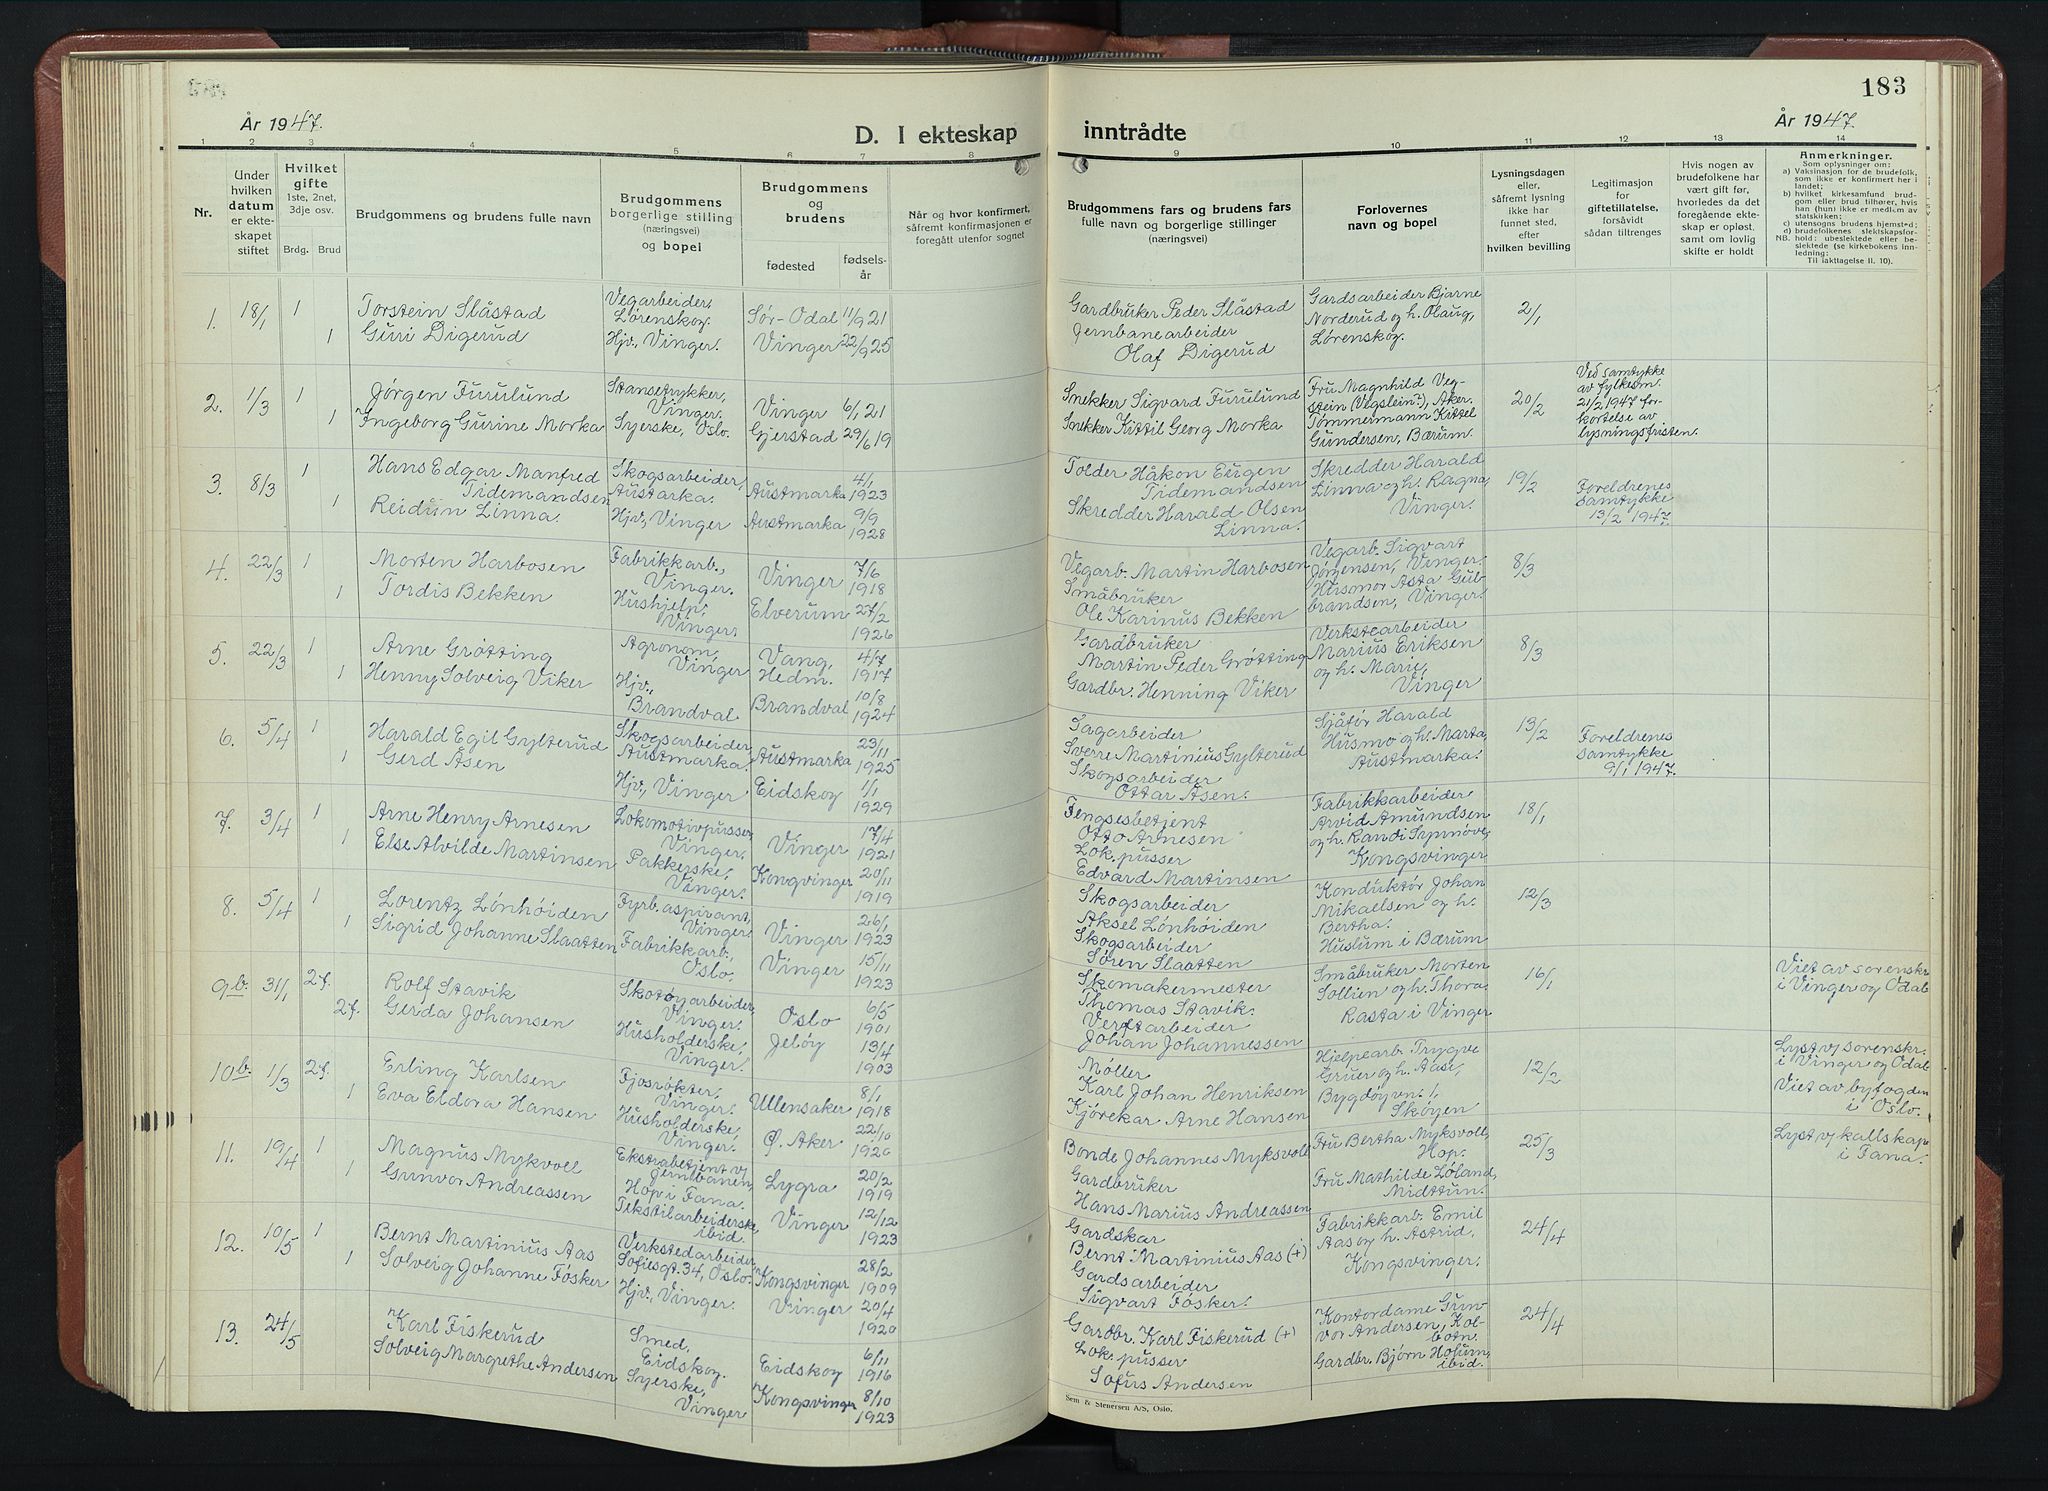 183
År 1947.
D. I ekteskap inntrådte
År 1947.
1 2 3 4 5 6 7 8 9 10 11 12 13 14
Nr.
Under
hvilken
datum
er ekte-
skapet
stiftet
Hvilket
gifte
1ste, 2net,
3dje osv.
Brdg. Brud
Brudgommens og brudens fulle navn
Brudgommens
borgerlige stilling
(næringsvei)
og bopel
Brudgommens
og
brudens
fødested
fødsels-
år
Når og hvor konfirmert,
såfremt konfirmasjonen er
foregått utenfor sognet
Brudgommens fars og brudens fars
fulle navn og borgerlige stillinger
(næringsvei)
Forlovernes
navn og bopel
Lysningsdagen
eller,
såfremt lysning
ikke har
funnet sted,
efter
hvilken bevilling
Legitimasjon
for
giftetillatelse,
forsåvidt
sådan tiltrenges
Hvis nogen av
brudefolkene har
vært gift før,
hvorledes da det
foregående ekte-
skap er opløst,
samt om lovlig
skifte er holdt
Anmerkninger.
Som oplysninger om:
a) Vaksinasjon for de brudefolk,
som ikke er konfirmert her i
landet;
b) hvilket kirkesamfund brud-
gom eller brud tilhører, hvis
han (hun) ikke er medlem av
statskirken;
c) utensogns brudens hjemsted;
d) brudefolkenes slektskapsfor-
NB. hold: ubeslektede eller be-
slektede (se kirkebokens inn-
ledning:
Til iakttagelse II. 10).
1. 18/1 1
1
Torstein Slåstad
Guri Digerud
Vegarbeider,
Lørenskog.
Hjv., Vinger.
Sør-Odal 11/9 21
Vinger 22/9 25
Gardbruker Peder Slåstad
Jernbanearbeider
Olaf Digerud
Gardsarbeider Bjarne
Norderud og h. Olaug,
Lørenskog.
2/1
2. 1/3 1
1
Jørgen Furulund
Ingeborg Gurine Morka
Stansetrykker,
Vinger.
Syerske, Oslo.
Vinger 6/1 21
Gjerstad 29/6 19
Snekker Sigvard Furulund
Snekker Kittil Georg Morka
Fru Magnhild Veg-
stein (Vegslein?), Aker.
Tømmermann Kittel
Gundersen, Bærum.
20/2
Ved samtykke
av fylkesm.
21/2 1947 for-
kortelse av
lysningsfristen.
3. 8/3 1
1
Hans Edgar Manfred
Tidemandsen
Reidun Linna.
Skogsarbeider,
Austarka.
Hjv., Vinger
Austmarka 4/1 1923
Austmarka 9/9 1928
Tolder Håkon Eugen
Tidemandsen
Skredder Harald Olsen
Linna.
Skredder Harald
Linna og h. Ragna,
Vinger.
19/2
Foreldrenes
samtykke
13/2 1947.
4. 22/3 1
1
Morten Harbosen
Tordis Bekken
Fabrikkarb.,
Vinger.
Hushjelp,
Vinger.
Vinger 7/6 1918
Elverum 27/2 1926
Vegarb. Martin Harbosen
Småbruker
Ole Karinus Bekken
Vegarb. Sigvart
Jørgensen, Vinger.
Husmor Asta Gul-
brandsen, Vinger.
8/3
5. 22/3 1
1
Arne Grøtting
Henny Solveig Viker
Agronom,
Vinger
Hjv.,
Brandval
Vang,
Hedm. 4/7 1917
Brandval 10/8 1924
Gardbruker
Martin Peder Grøtting
Gardbr. Henning Viker
Verkstearbeider
Marius Eriksen
og h. Marie,
Vinger
8/3
6. 5/4 1
1
Harald Egil Gylterud
Gerd Åsen
Skogsarbeider,
Austmarka.
Hjv., Vinger
Austmarka 23/11 1925
Eidskog 1/1 1929
Sagarbeider
Sverre Martinius Gylterud
Skogsarbeider
Ottar Åsen.
Sjåfør Harald
Husmo og h. Marta,
Austmarka.
13/2
Foreldrenes
samtykke
9/1 1947.
7. 3/4 1
1
Arne Henry Arnesen
Else Alvilde Martinsen
Lokomotivpusser,
Vinger.
Pakkerske,
Vinger.
Vinger 17/4 1921
Kongvinger 20/11 1919
Fengselsbetjent
Otto Arnesen
Lok. pusser
Edvard Martinsen
Fabrikkarbeider
Arvid Amundsen
og h. Randi Synnøve,
Kongsvinger
18/1
8. 5/4 1
1
Lorentz Lønhøiden
Sigrid Johanne Slaatten
Fyrb. aspirant,
Vinger.
Fabrikkarb.,
Oslo.
Vinger 26/1 1923
Vinger 15/11 1923
Skogsarbeider
Aksel Lønhøiden
Skogsarbeider
Søren Slaatten
Konduktør Johan
Mikaelsen og h.
Bertha.
Huslum i Bærum
12/3
9b. 31/1 2f.
2f.
Rolf Stavik
Gerda Johansen
Skotøyarbeider,
Vinger.
Husholderske,
Vinger.
Oslo 6/5 1901
Jeløy 13/4 1903
Skomakermester
Thomas Stavik.
Verftarbeider
Johan Johannessen
Småbruker Morten
Sollien og h. Thora.
Rasta i Vinger
16/1
Viet av sorenskr
i Vinger og Odal
10b. 1/3 2f.
1
Erling Karlsen
Eva Eldora Hansen
Fjosrøkter,
Vinger.
Husholderske,
Vinger.
Ullensaker 8/1 1918
Ø. Aker 22/10 1920
Møller
Karl Johan Henriksen
Kjørekar Arne Hansen
Hjelpearb. Trygve
Gruer og h. Aase,
Bygdøyvn. 1,
Skøyen
12/2
Lyst v/ sorenskr.
i Vinger og Odal
Viet av byfogden
i Oslo.
11. 19/4 1
1
Magnus Mykvoll
Gunvor Andreassen
Ekstrabetjent v/
Jernbanen,
Hop i Fana.
Tekstilarbeiderske,
ibid.
Lygra 20/2 1919
Vinger 12/12 1923
Bonde Johannes Myksvoll
Gardbruker
Hans Marius Andreassen
Fru Bertha Myksvoll,
Hop.
Fru Mathilde Løland,
Midttun.
25/3
Lyst v/ kallskap.
i Fana.
12. 10/5 1
1
Bernt Martinius Aas
Solveig Johanne Fösker
Verkstedarbeider
Sofiesgt. 34, Oslo.
Hjv., Vinger.
Kongsvinger 28/2 1909
Vinger 20/4 1920
Gardskar
Bernt Martinius Aas (+)
Gardsarbeider
Sigvart Fösker.
Fabrikkarb. Emil
Aas og h. Astrid,
Kongsvinger.
24/4
13. 24/5 1
1
Karl Fiskerud
Solveig Margrethe Andersen
Smed,
Eidskog.
Syerske,
Vinger
Eidskog 6/11 1916
Kongsvinger 8/10 1923
Gardbr. Karl Fiskerud (+)
Lok. pusser
Sofus Andersen
Kontordame Gun-
vor Andersen, Kol-
botn.
Gardbr. Bjørn Holum,
ibid.
24/4
Sem & Stenersen A/S, Oslo.